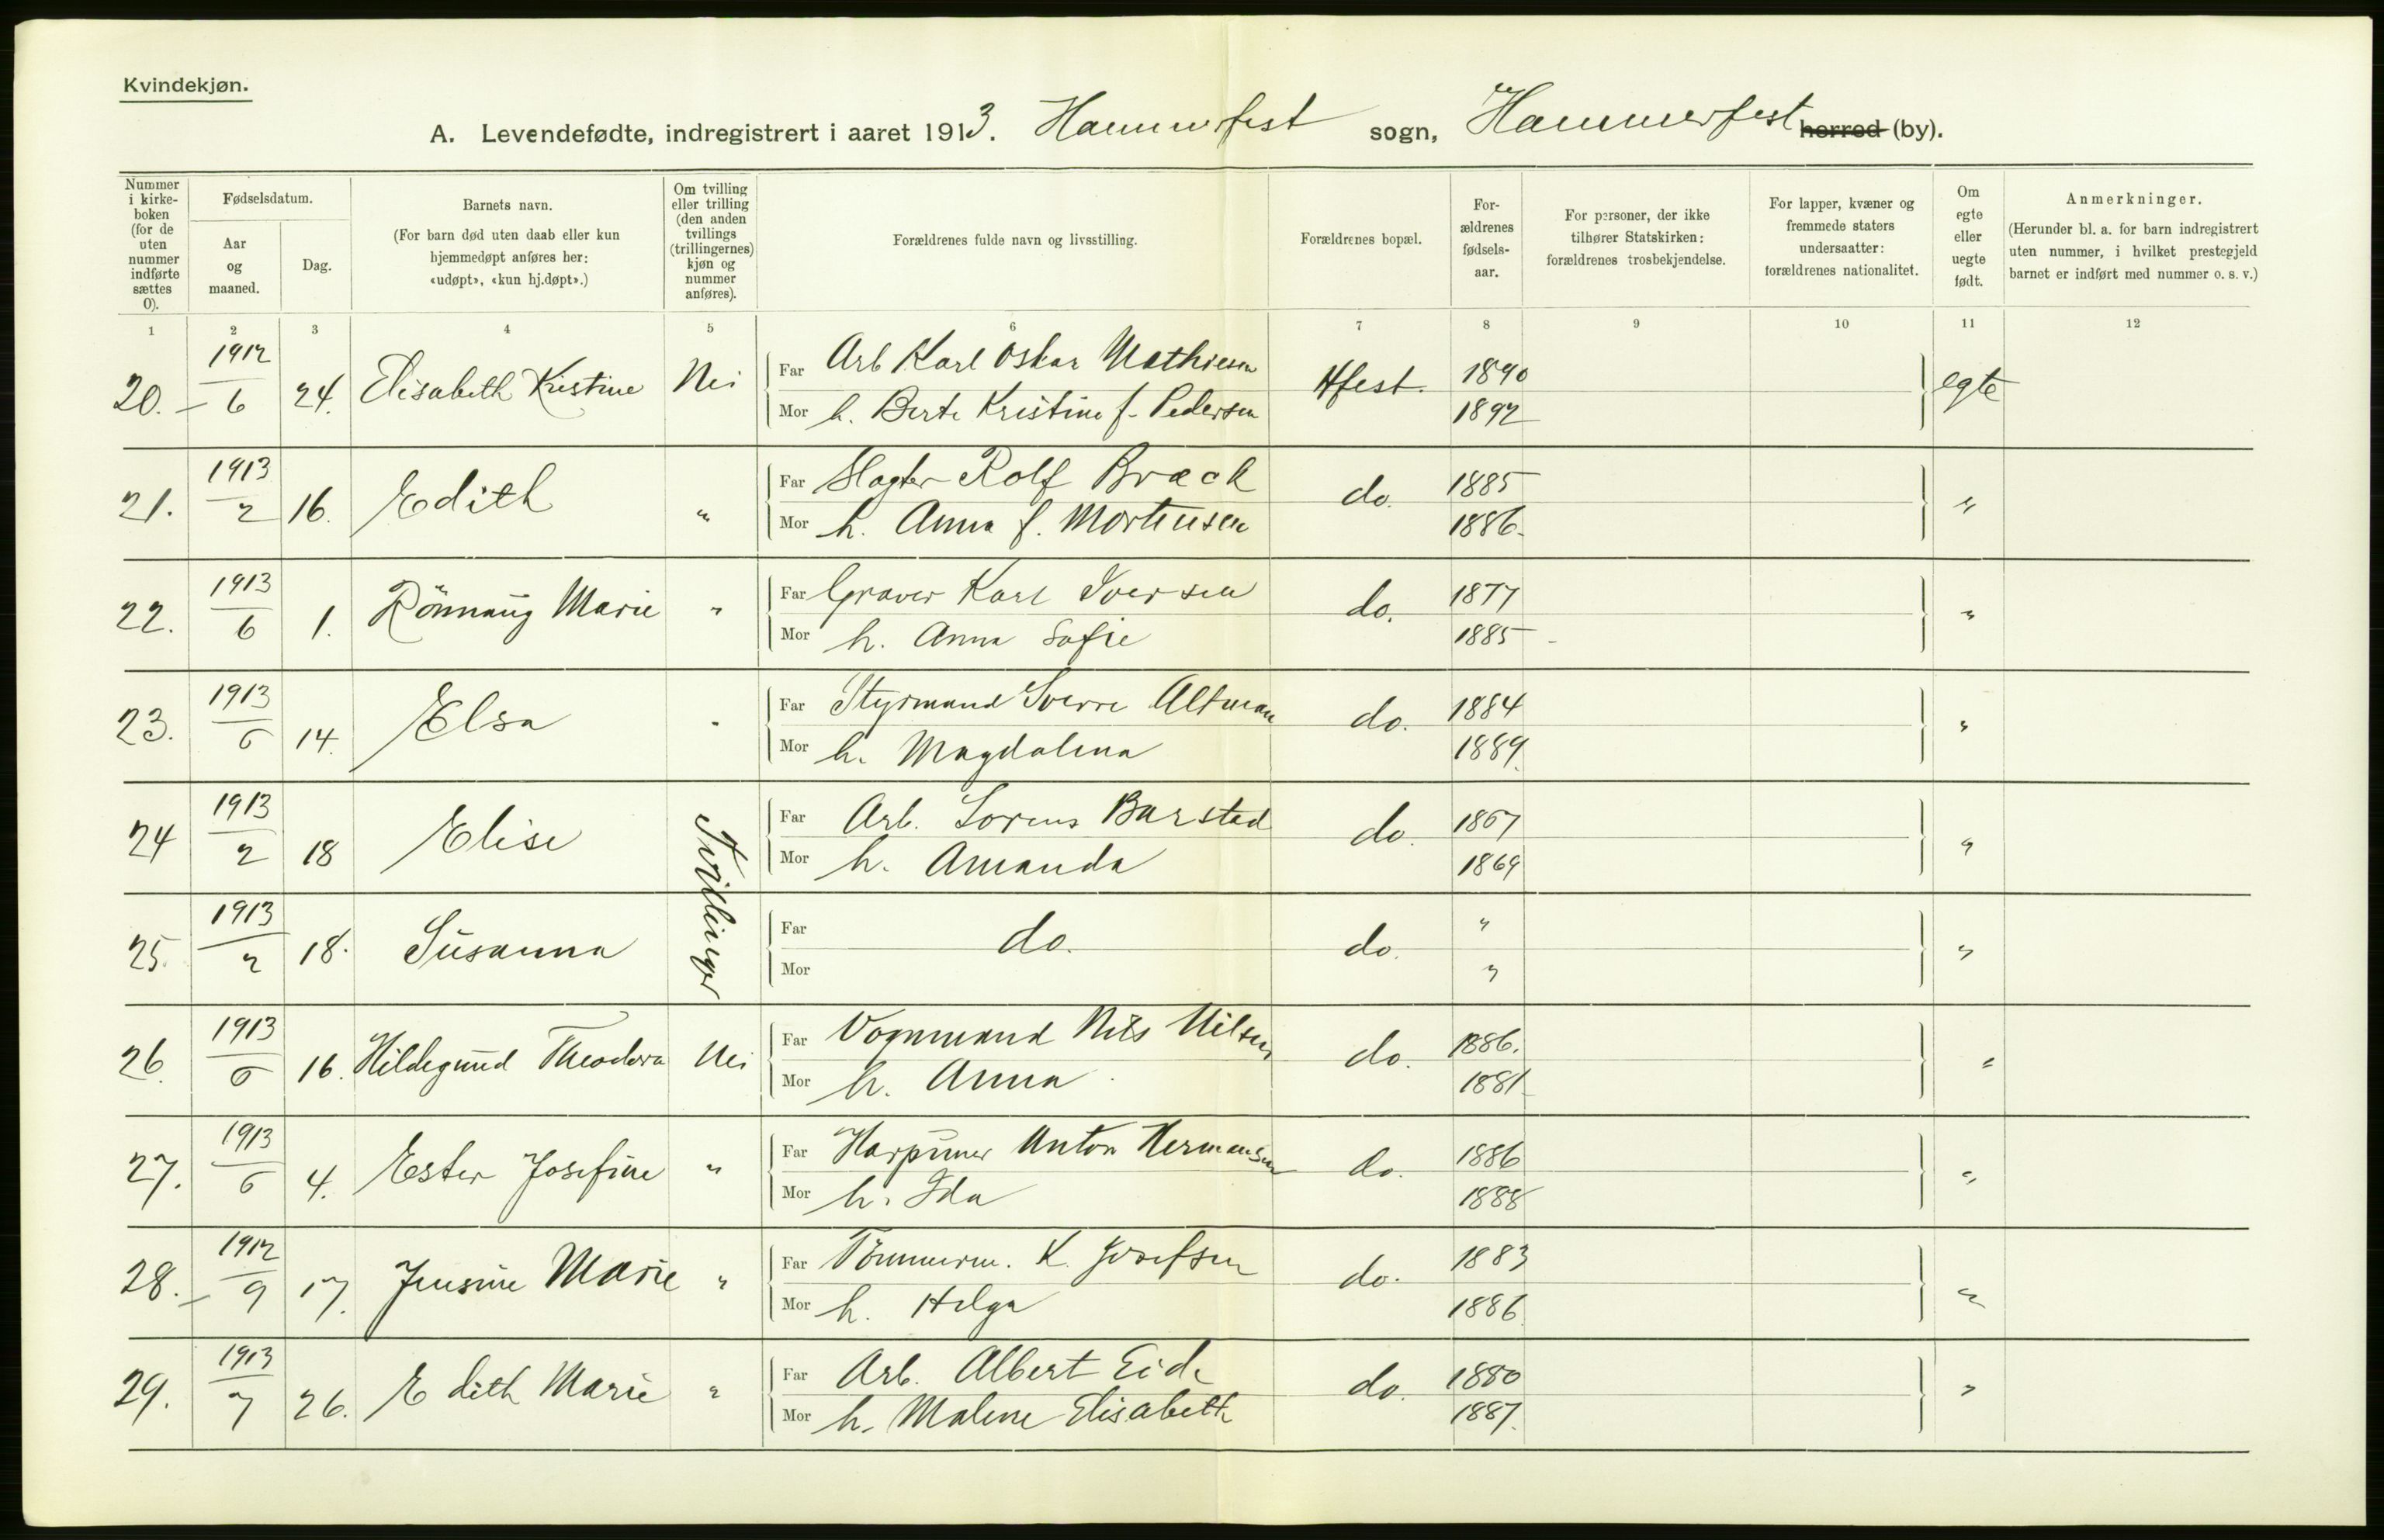 Kvindekjøn.
A. Levendefødte, indregistrert i aaret 1913. Hammerfest sogn, Hammerfest herred (by).
Nummer i kirke-boken (for de uten nummer indførte sættes 0).
Fødselsdatum.
Aar og maaned.
Dag.
Barnets navn.
(For barn død uten daab eller kun hjemmedøpt anføres her: «udøpt», «kun hj.døpt».)
Om tvilling eller trilling (den anden tvillings (trillingernes) kjøn og nummer anføres).
Forældrenes fulde navn og livsstilling.
Forældrenes bopæl.
For-ældrenes fødsels-aar.
For personer, der ikke tilhører Statskirken: forældrenes trosbekjendelse.
For lapper, kvæner og fremmede staters undersaatter: forældrenes nationalitet.
Om egte eller uegte født.
Anmerkninger.
(Herunder bl. a. for barn indregistrert uten nummer, i hvilket prestegjeld barnet er indført med nummer o. s. v.)
1 2 3 4 5 6 7 8 9 10 11 12
20. 1912/6 24. Elisabeth Kristine Nei Far Arb Karl Oskar Mathiesen Hfest. 1890 egte
Mor h. Berte Kristine f. Pedersen 1892
21. 1913/2 16. Edith " Far Slagter Rolf Brack do. 1885 "
Mor h. Anna f. Mortensen 1886.
22. 1913/6 1. Rönnaug Marie " Far Graver Karl Iversen do. 1877 "
Mor h. Anna Sofie 1885
23. 1913/6 14. Elsa " Far Styrmand Sverre Altman do. 1884 "
Mor h. Magdalena 1889.
24 1913/2 18 Elise Tvillinger Far Arb. Lorens Barstad do. 1867 "
Mor h. Amanda 1869
25. 1913/2 18. Susanna Far do. do. " "
Mor "
26. 1913/6 16. Hildegund Theodora Nei Far Vognmand Nils Nilsen do. 1886. "
Mor h. Anna 1881
27. 1913/6 4. Ester Josefine " Far Harpuner Anton Hermansen do. 1886 "
Mor h. Ida 1888
28. 1912/9 17. Jensine Marie " Far Tömmerm. K. Josefsen do. 1883 "
Mor h. Helga 1886
29. 1913/7 26. Edith Marie " Far Arb. Albert Eide do. 1880 "
Mor h. Malene Elisabeth 1887.